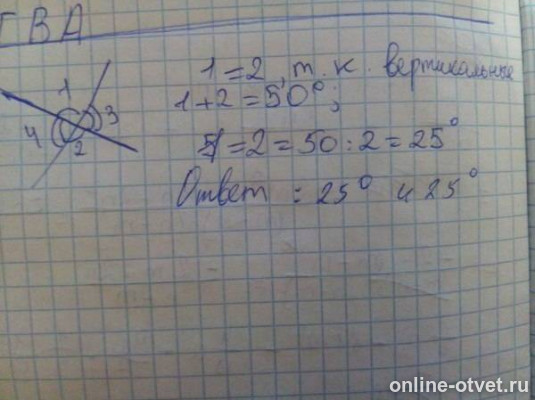 ГВА
1 = 2, т. к. вертикальные
1 + 2 = 50°;
1 = 2 = 50 : 2 = 25°
Ответ : 25° и 25°
1
3
4
2
online-otvet.ru